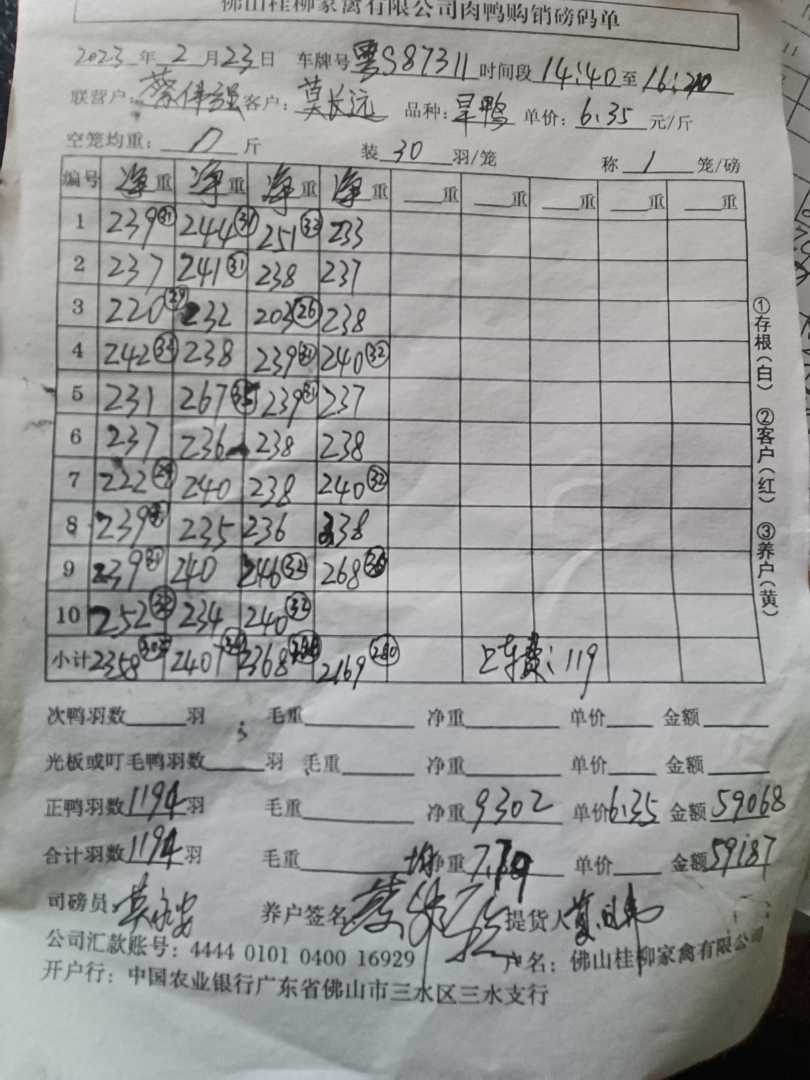 佛山桂柳家禽有限公司肉鸭购销磅码单
2023 年 2 月 23 日 车牌号 粤S87311 时间段 14:40 至 16:20
联营户: 蔡伟强 客户: 莫长远 品种: 旱鸭 单价: 6.35 元/斤
空笼均重: 0 斤 装 30 羽/笼 称 1 笼/磅
编号 净重 净重 净重 净重 重 重 重 重 重
1 239㉛ 244 251㉝ 233
2 237 241㉛ 238 237
3 220㉙ 232 203㉖ 238
4 242 238 239㉛ 240㉜
5 231 267 239㉛ 237
6 237 236 238 238
7 222㉙ 240 238 240㉜
8 239 235 236 238
9 239㉛ 240 246㉜ 268
10 252 234 240㉜
小计 2358 2407 2368 2169 280 上车费:119
次鸭羽数 羽 毛重 净重 单价 金额
光板或叮毛鸭羽数 羽 毛重 净重 单价 金额
正鸭羽数 1194 羽 毛重 净重 9302 单价 6.35 金额 59068
合计羽数 1194 羽 毛重 均净重 7.79 单价 金额 59187
司磅员: 养户签名 提货人
公司汇款账号: 4444 0101 0400 16929 户名: 佛山桂柳家禽有限公司
开户行: 中国农业银行广东省佛山市三水区三水支行
①存根(白) ②客户(红) ③养户(黄)